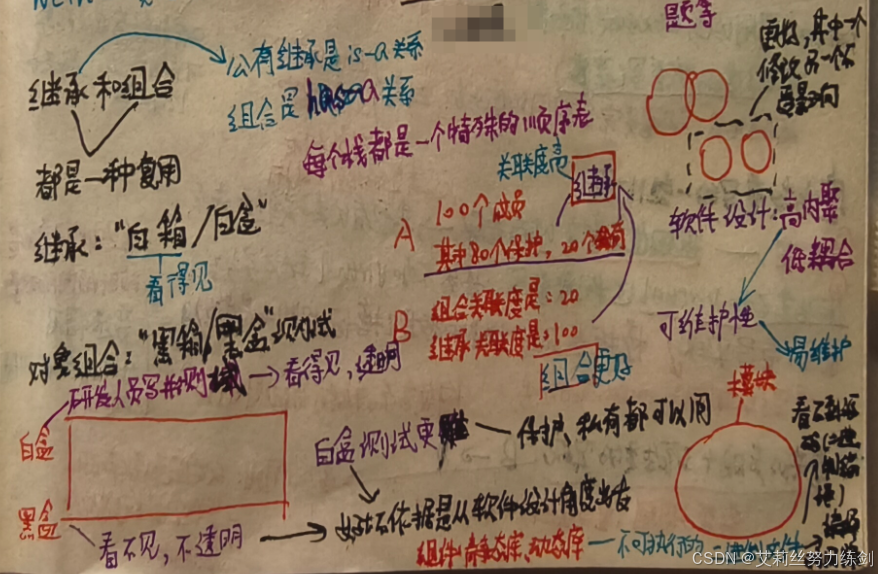 题等
继承和组合
公有继承是is-a关系
组合是has-a关系
都是一种复用
每个栈都是一个特殊的顺序表
关联度高
继承
更好，其中一个
修改另一个不
受影响
继承："白箱/白盒"
看得见
A
100个成员
其中80个保护，20个公有
软件设计：高内聚
低耦合
B
组合关联度是：20
继承关联度是：100
组合更好
可维护性
易维护
对象组合："黑箱/黑盒"测试
研发人员写并测
看得见，透明
白盒
白盒测试更难
保护、私有都可以用
模块
黑盒
看不见，不透明
好坏依据是从软件设计角度出发
组件 静态库、动态库
不可执行的
CSDN @艾莉丝努力练剑